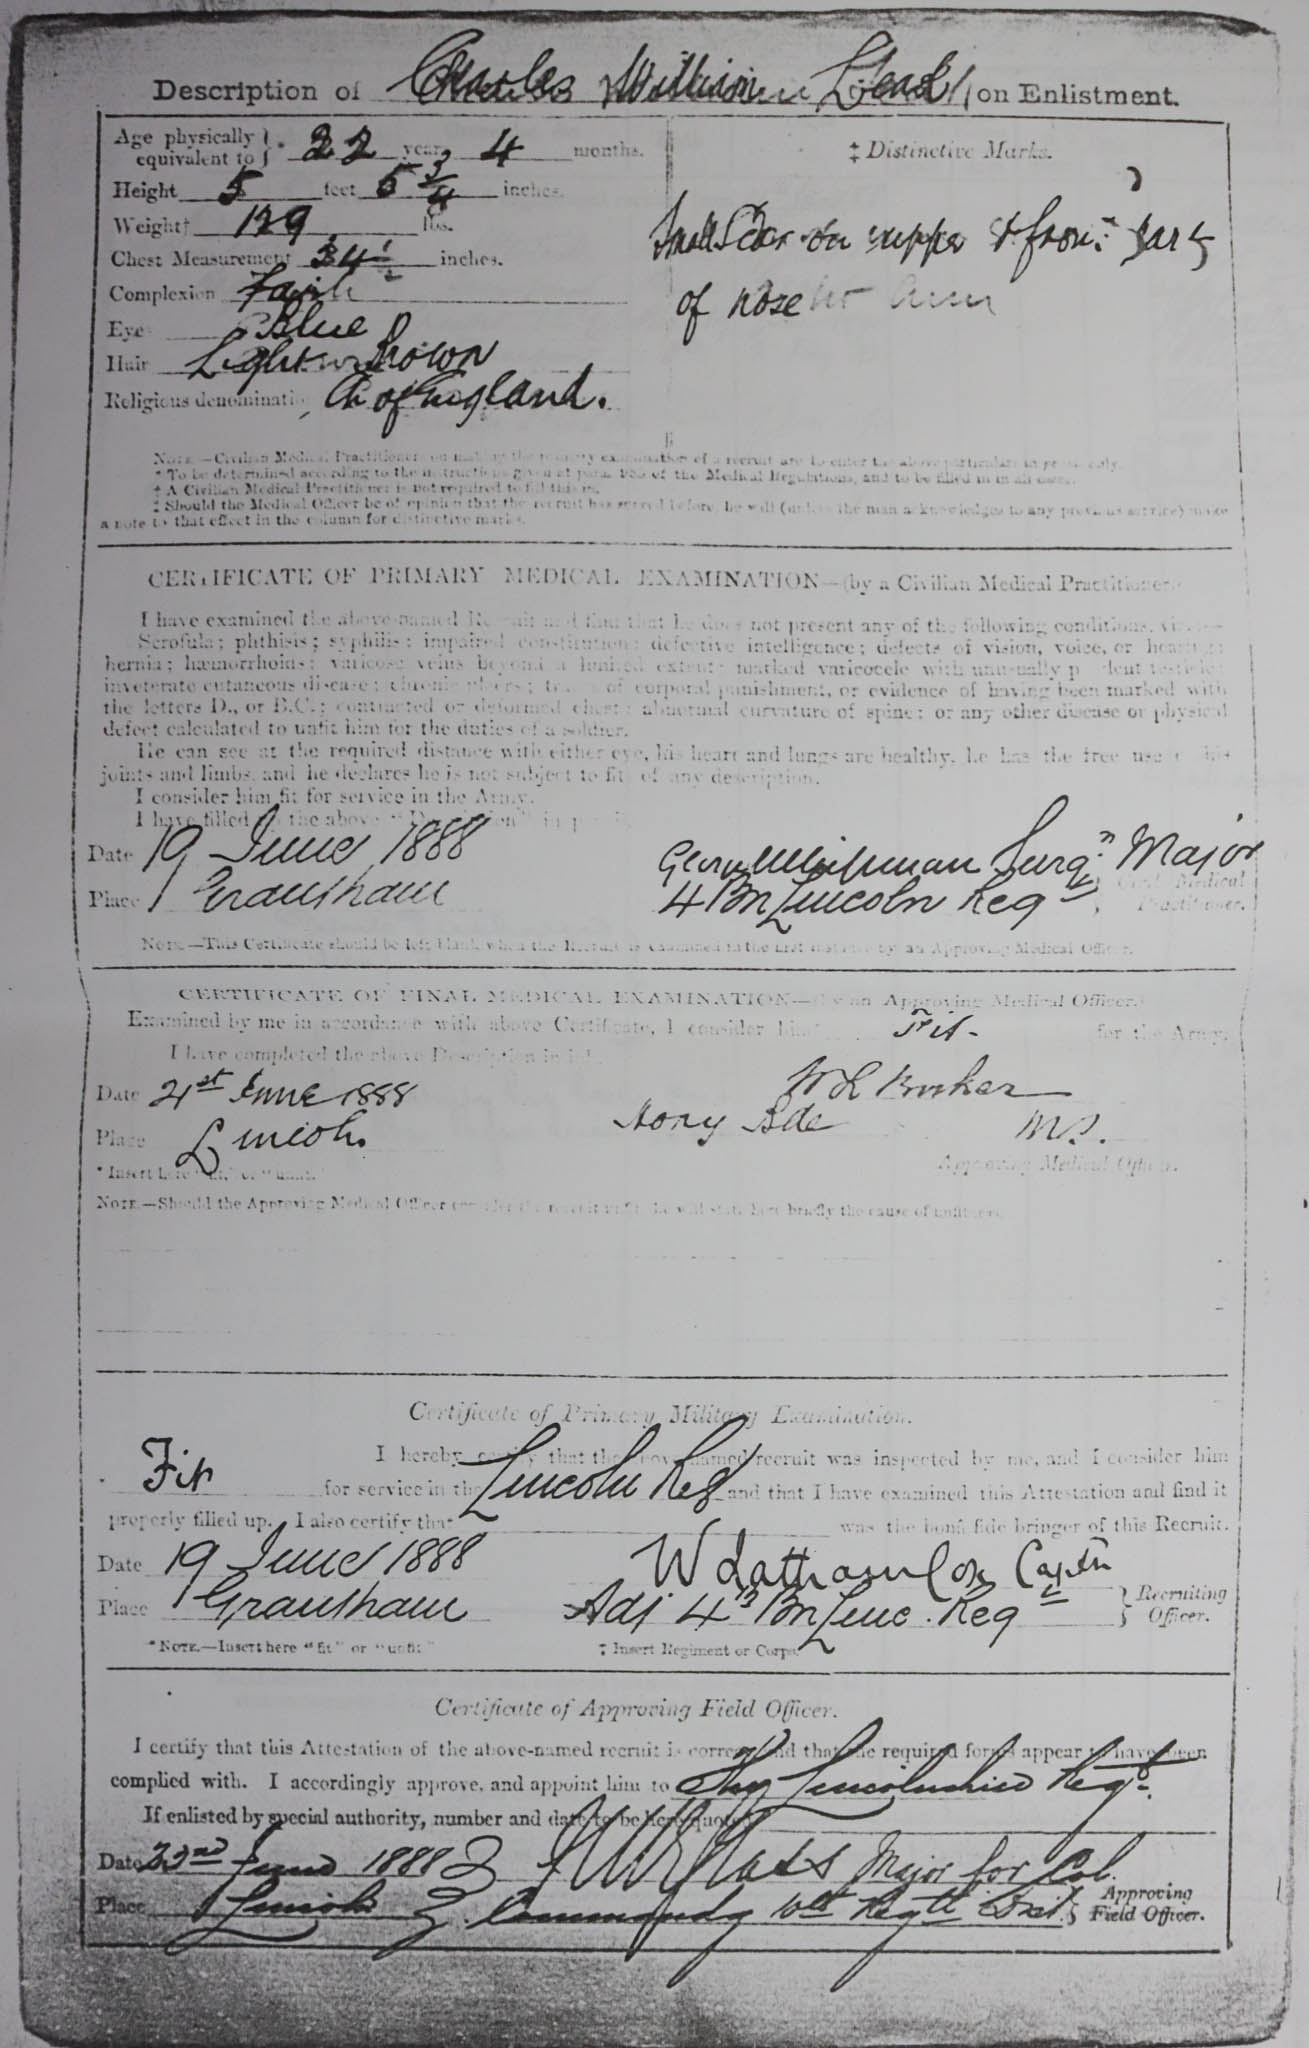 Description of Charles William Lead on Enlistment.
Age physically equivalent to } * 22 years 4 months.
Height 5 feet 5 3/4 inches.
Weight† 129 lbs.
Chest Measurement 34 inches.
Complexion Fresh
Eyes Blue
Hair Light Brown
Religious denomination Ch of England.
‡ Distinctive Marks.
Small Scar on upper & front part
of nose
NOTE.—Civilian Medical Practitioners on making the primary examination of a recruit are to enter the above particulars in pencil only.
* To be determined according to the instructions given at para. of the Medical Regulations, and to be filled in in all cases.
† A Civilian Medical Practitioner is not required to fill this in.
‡ Should the Medical Officer be of opinion that the recruit has served before, he will (unless the man acknowledges to any previous service) make
a note to that effect in the column for distinctive marks.
CERTIFICATE OF PRIMARY MEDICAL EXAMINATION—(by a Civilian Medical Practitioner.)
I have examined the above-named Recruit and find that he does not present any of the following conditions, viz.:—
Scrofula; phthisis; syphilis; impaired constitution; defective intelligence; defects of vision, voice, or hearing;
hernia; hæmorrhoids; varicose veins beyond a limited extent; marked varicocele with unusually pendent testicle;
inveterate cutaneous disease; chronic ulcers; traces of corporal punishment, or evidence of having been marked with
the letters D., or B.C.; contracted or deformed chest; abnormal curvature of spine; or any other disease or physical
defect calculated to unfit him for the duties of a soldier.
He can see at the required distance with either eye, his heart and lungs are healthy, he has the free use of his
joints and limbs, and he declares he is not subject to fits of any description.
I consider him fit for service in the Army.
I have filled in the above "Description" in pencil.
Date 19 June 1888 Surgn Major
Place Grantham 4 Bn Lincoln Regt } Civil Medical Practitioner.
NOTE.—This Certificate should be left blank when the Recruit is examined in the first instance by an Approving Medical Officer.
CERTIFICATE OF FINAL MEDICAL EXAMINATION—(by an Approving Medical Officer.)
Examined by me in accordance with above Certificate, I consider him* Fit for the Army.
I have completed the above Description in ink.
Date 21st June 1888
Place Lincoln M.S.
Approving Medical Officer.
* Insert here "fit" or "unfit."
NOTE.—Should the Approving Medical Officer consider the recruit unfit, he will state here briefly the cause of unfitness.
Certificate of Primary Military Examination.
I hereby certify that the above-named recruit was inspected by me, and I consider him
* Fit for service in the Lincoln Reg and that I have examined this Attestation and find it
properly filled up. I also certify that was the bonâ fide bringer of this Recruit.
Date 19 June 1888 Captn
Place Grantham Adj 4th Bn Linc. Regt } Recruiting Officer.
* NOTE.—Insert here "fit" or "unfit" ‡ Insert Regiment or Corps.
Certificate of Approving Field Officer.
I certify that this Attestation of the above-named recruit is correct, and that the required forms appear to have been
complied with. I accordingly approve, and appoint him to The Lincolnshire Regt.
If enlisted by special authority, number and date to be here quoted
Date 22nd June 1888 } Major for Col.
Place Lincoln } Commandg 10th Regtl Dist. } Approving Field Officer.